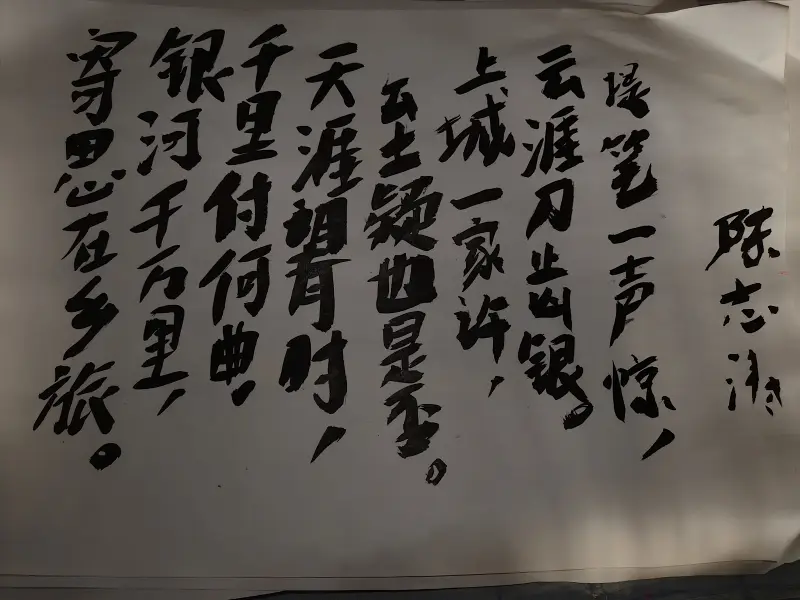 陈志
提笔一声惊，
云涯刀齿银。
上城一家许，
云土疑也是否。
天涯明有时，
千里付何曲。
银河千万里，
寄思在乡旅。